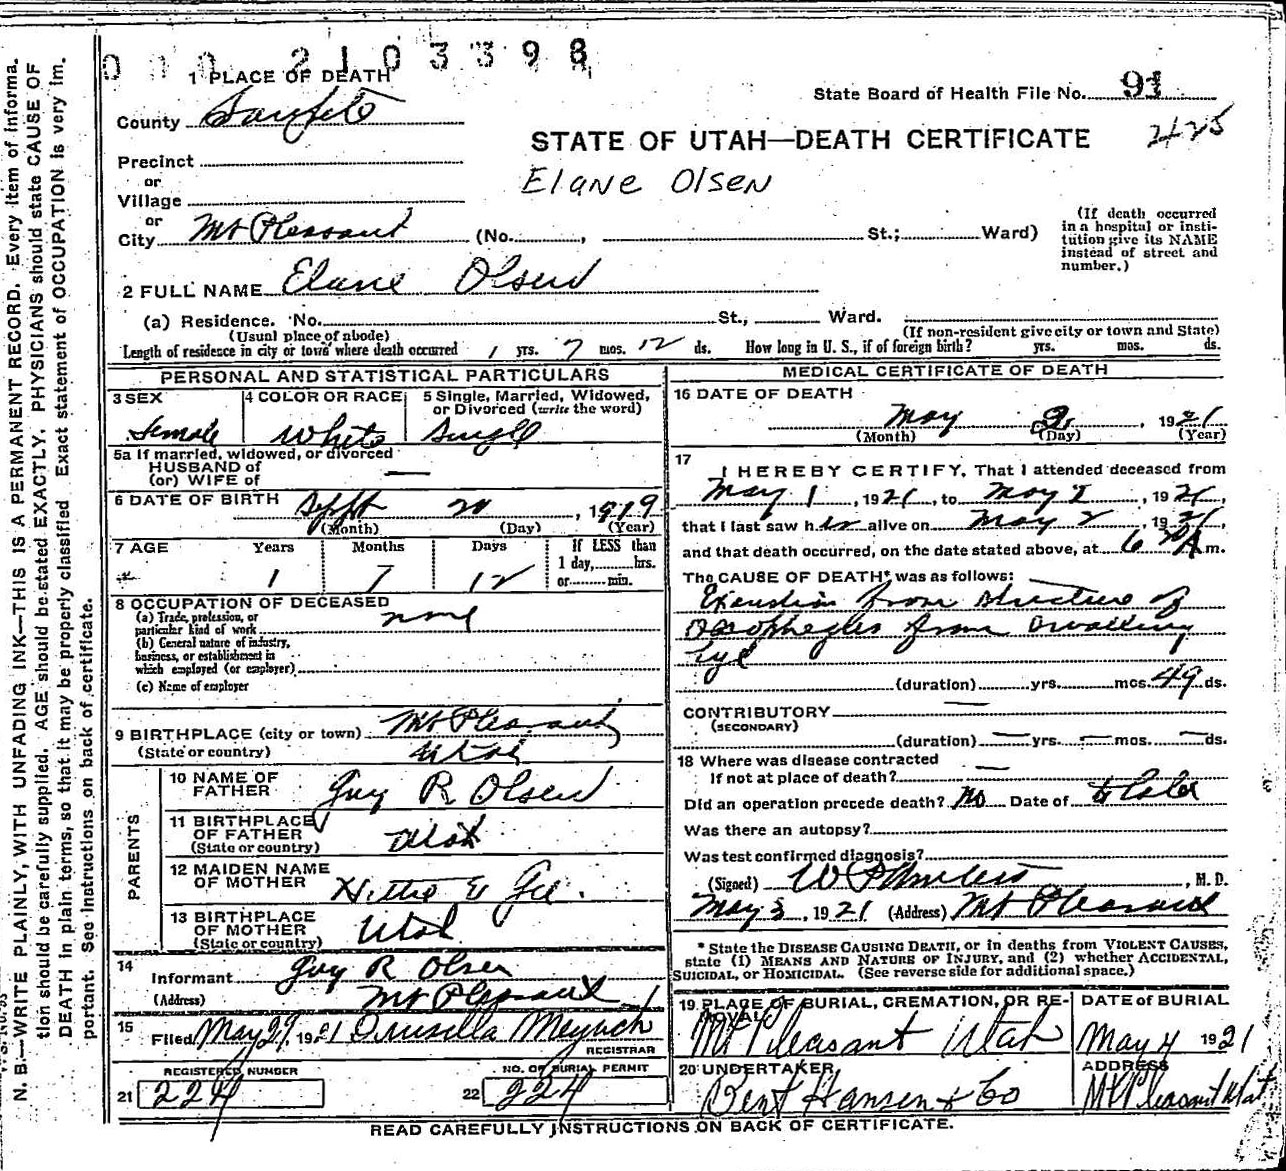 000 2103398
1 PLACE OF DEATH
County Sanpete
State Board of Health File No. 91
425
STATE OF UTAH—DEATH CERTIFICATE
Precinct
or
Village
Elane Olsen
or
City Mt Pleasant (No. , St.; Ward)
(If death occurred in a hospital or insti-
tution give its NAME
instead of street and
number.)
2 FULL NAME Elane Olsen
(a) Residence. No. St., Ward.
(Usual place of abode) (If non-resident give city or town and State)
Length of residence in city or town where death occurred 1 yrs. 7 mos. 12 ds. How long in U. S., if of foreign birth? yrs. mos. ds.
PERSONAL AND STATISTICAL PARTICULARS
3 SEX 4 COLOR OR RACE 5 Single, Married, Widowed,
or Divorced (write the word)
Female White Single
5a If married, widowed, or divorced
HUSBAND of
(or) WIFE of —
6 DATE OF BIRTH Sept 20, 1919
(Month) (Day) (Year)
7 AGE Years Months Days If LESS than
1 day, hrs.
or min.
1 7 12
8 OCCUPATION OF DECEASED
(a) Trade, profession, or
particular kind of work none
(b) General nature of industry,
business, or establishment in
which employed (or employer)
(c) Name of employer
9 BIRTHPLACE (city or town) Mt Pleasant
(State or country) Utah
PARENTS
10 NAME OF
FATHER Guy R Olsen
11 BIRTHPLACE
OF FATHER
(State or country) Utah
12 MAIDEN NAME
OF MOTHER
13 BIRTHPLACE
OF MOTHER
(State or country) Utah
14 Informant Guy R Olsen
(Address) Mt Pleasant
15 Filed May 29, 1921 Drusilla
REGISTRAR
REGISTERED NUMBER NO. OF BURIAL PERMIT
21 224 22 224
MEDICAL CERTIFICATE OF DEATH
16 DATE OF DEATH
May 2, 1921
(Month) (Day) (Year)
17 I HEREBY CERTIFY, That I attended deceased from
May 1, 1921, to May 2, 1921,
that I last saw her alive on May 2, 1921,
and that death occurred, on the date stated above, at 6 30 A m.
The CAUSE OF DEATH* was as follows:
from stricture of
from swallowing
Lye
(duration) yrs. mos. 49 ds.
CONTRIBUTORY —
(SECONDARY)
(duration) — yrs. — mos. — ds.
18 Where was disease contracted
if not at place of death? —
Did an operation precede death? No Date of
Was there an autopsy?
Was test confirmed diagnosis?
(Signed) W P , M. D.
May 3, 1921 (Address) Mt Pleasant
* State the DISEASE CAUSING DEATH, or in deaths from VIOLENT CAUSES,
state (1) MEANS AND NATURE OF INJURY, and (2) whether ACCIDENTAL,
SUICIDAL, or HOMICIDAL. (See reverse side for additional space.)
19 PLACE OF BURIAL, CREMATION, OR RE-
MOVAL DATE of BURIAL
Mt Pleasant Utah May 4 1921
20 UNDERTAKER ADDRESS
Bent Hansen & Co Mt Pleasant Utah
READ CAREFULLY INSTRUCTIONS ON BACK OF CERTIFICATE.
N. B.—WRITE PLAINLY, WITH UNFADING INK—THIS IS A PERMANENT RECORD. Every item of informa-
tion should be carefully supplied. AGE should be stated EXACTLY. PHYSICIANS should state CAUSE OF
DEATH in plain terms, so that it may be properly classified. Exact statement of OCCUPATION is very im-
portant. See instructions on back of certificate.